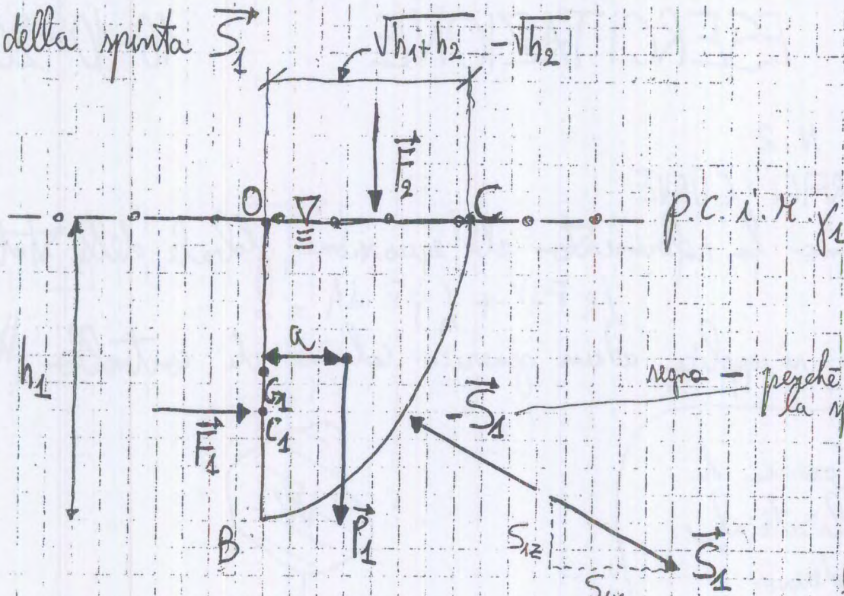 della spinta S₁
√h₁+h₂ - √h₂
F₂
O C p.c.i.r. γ₁
h₁
a
G₁
C₁
F₁
-S₁
segno - perché
la
B
P₁
S₁z
S₁